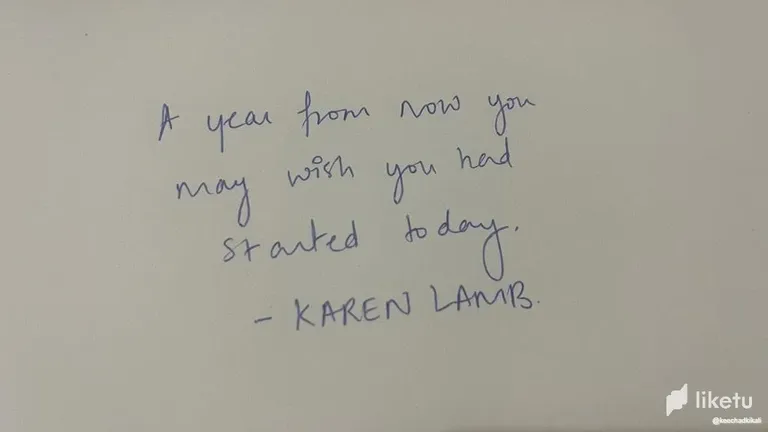 A year from now you
may wish you had
started today.
- KAREN LAMB.
liketu
@keechadkikali